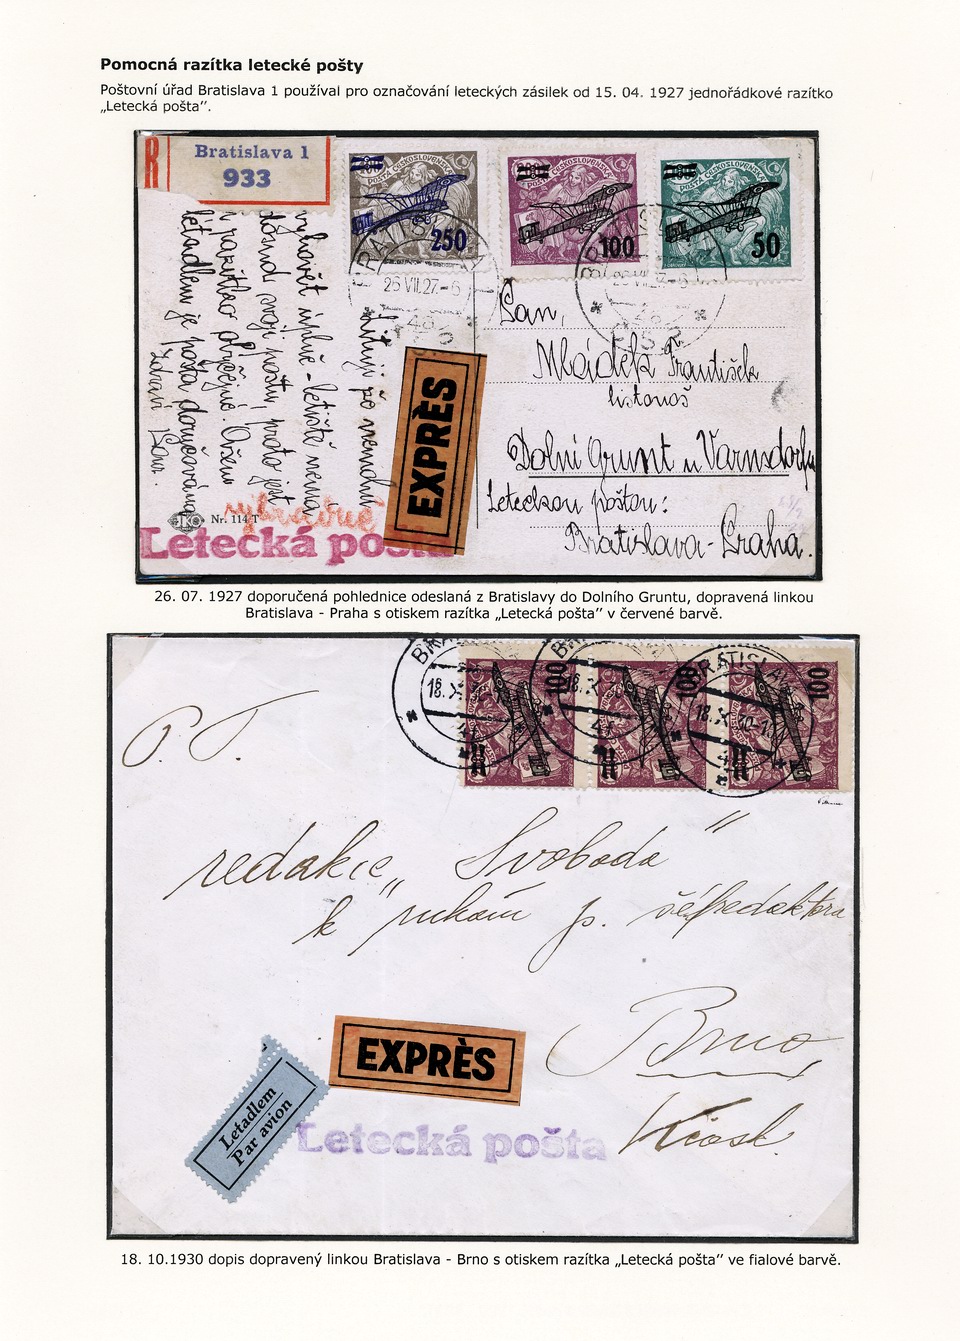 Pomocná razítka letecké pošty
Poštovní úřad Bratislava 1 používal pro označování leteckých zásilek od 15. 04. 1927 jednořádkové razítko
„Letecká pošta”.
R
Bratislava 1
933
POSTA ČESKOSLOVENSKÁ
250
POSTA ČESKOSLOVENSKÁ
100
POSTA ČESKOSLOVENSKÁ
50
26.VII.27.-6
Pan,
Mládek František
listonoš
Dolní Grunt u Varnsdorfu
Leteckou poštou:
Bratislava-Praha.
vyhovět úplně - letiště nemá
svoji poštu, proto jest
razítko obyčejné.
letadlem je pošta doručována
Zdraví
EXPRÈS
Nr. 114 T
Letecká pošta
26. 07. 1927 doporučená pohlednice odeslaná z Bratislavy do Dolního Gruntu, dopravená linkou
Bratislava - Praha s otiskem razítka „Letecká pošta” v červené barvě.
BRATISLAVA
18.X
100
100
100
P. T.
redakcie „Svoboda”
k rukám p. šéfredaktora
Brno
EXPRÈS
Letadlem
Par avion
Letecká pošta
18. 10.1930 dopis dopravený linkou Bratislava - Brno s otiskem razítka „Letecká pošta” ve fialové barvě.